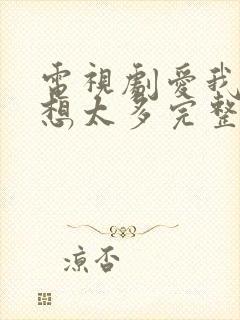 電視劇愛我
想太多完整
涼否